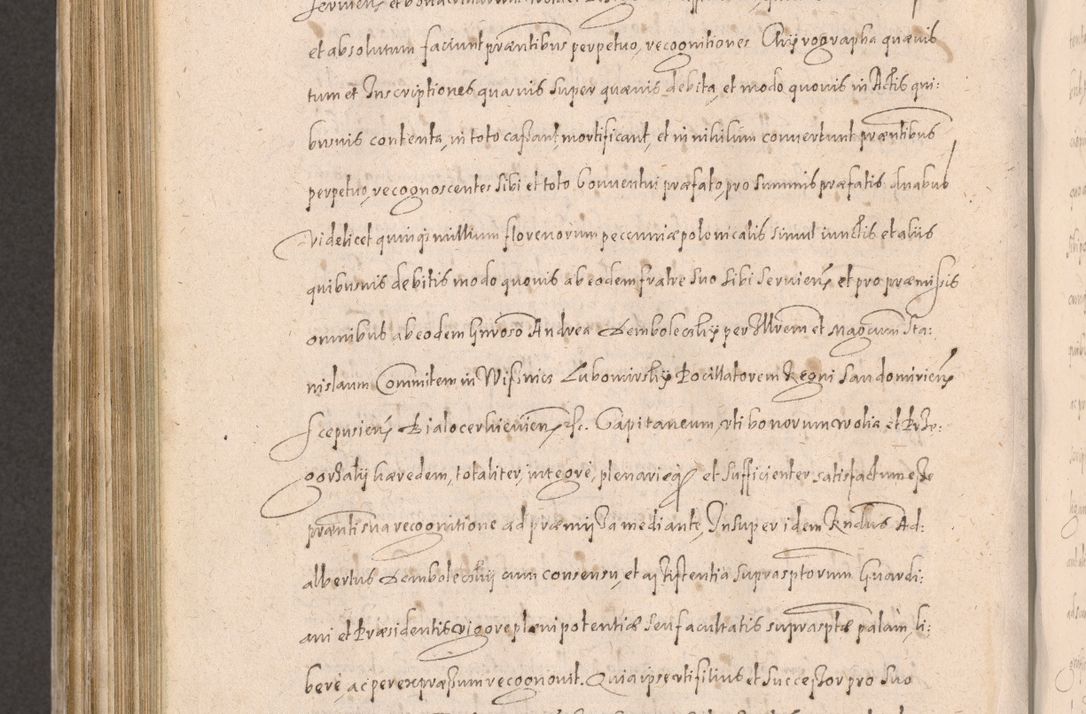 et absolutum faciunt præntibus perpetuo, recognitiones Chyrographa quæuis
tum et Inscriptiones quasuis super quæuis debita, et modo quouis in Actis qui:
busuis contenta, in toto cassant, mortificant, et in nihilum conuertunt præntibus
perpetuo, recognoscentes sibi et toto Conuentui præfato, pro summis præfatis duabus
videlicet quinqs millium florenorum pecuniæ polonicalis simul iunctis et aliis
quibusuis debitis modo quouis ab eodem fratre suo sibi seruien et pro præmissis
omnibus ab eodem Gnroso Andrea Dembolecky per Illrem et Magcum Sta:
nislaum Commitem in Wisnics Lubomirsky Pocillatorem Regni Sandomirien
Scepusien Bialocerkieuien etc. Capitaneum, uti bonorum Wolia et Prze:
gorzaly hæredem, totaliter, integrè, plenarieq et sufficienter satisfactum esse
prænti sua recognitione ad præmissa mediante, Insuper idem Rndus Ad:
albertus Dembolecky cum consensu, et assistentia suprasptorum Guardi:
ani et Præsidentis vigore plænipotentiæ seu facultatis supraspta palàm, li:
berè, ac per expræssum recognouit. Quia ipse uti filius et Successor pro suo